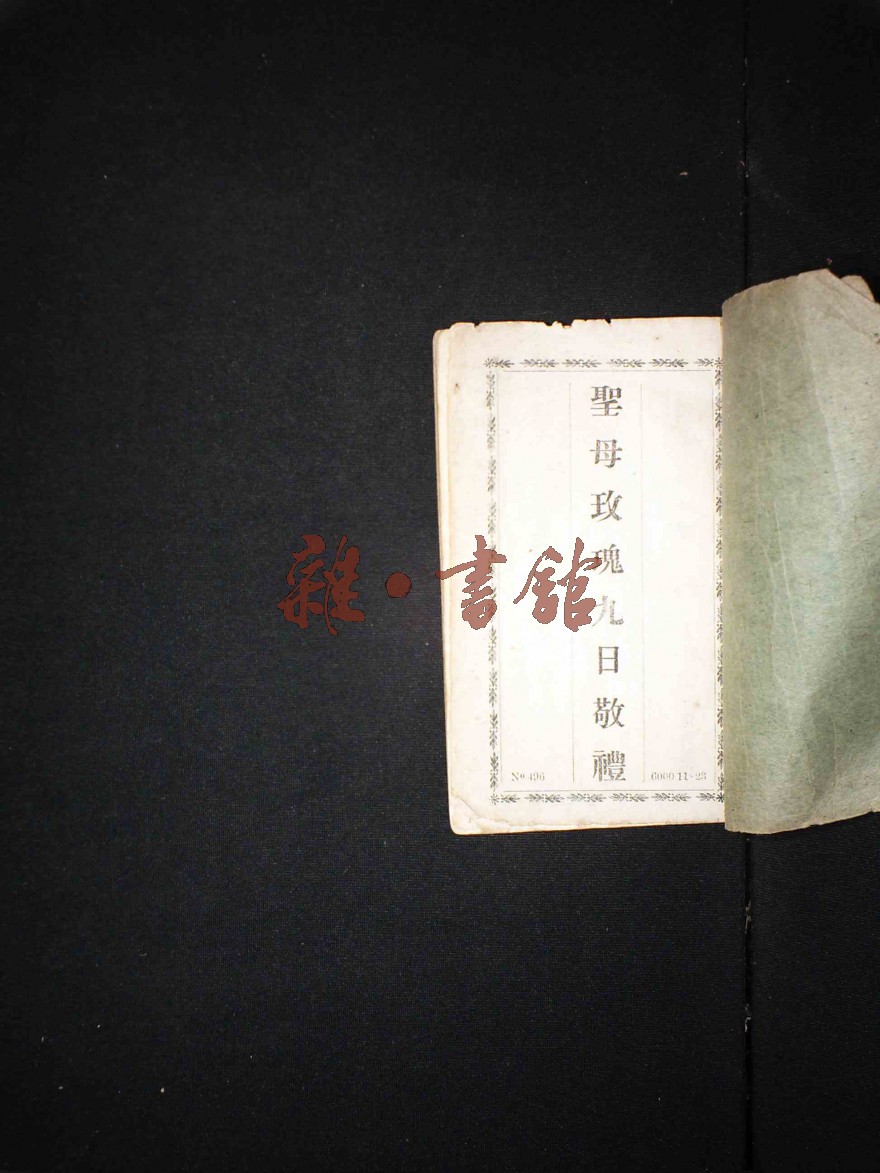 聖母玫瑰九日敬禮
Nº 496
6000-11-23
雜·書舘